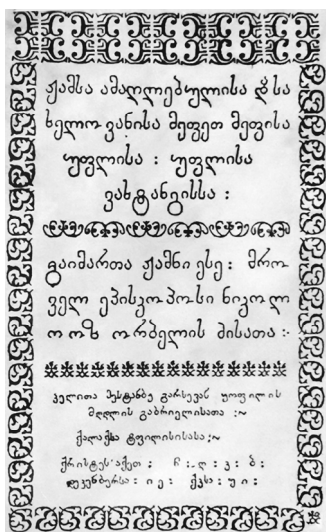 ჟამსა ამაღლებულისა დ სა
ხელოვანისა მეფეთ მეფისა
უფლისა : უფლისა
ვახტანგისსა :
გაიმართა ჟამნი ესე : მრო
ველ ეპისკოპოსი ნიკოლ
ოოზ ორბელის მისათა :
ჴელითა მესტანბე გარსევან ყოფილის
მღდლის გაბრიელისათა :~
ქალაქსა ტფილისისასა :~
ქრისტეს აქეთ : ჩ : ღ : კ : ბ :
დეკენბერსა : ი ე : ქკსა : უ ი :